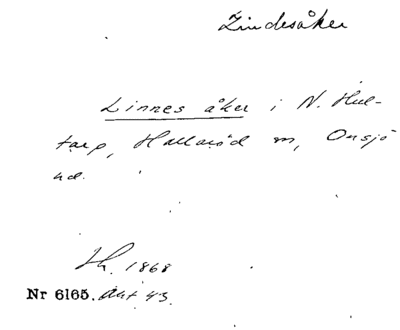 Lindesåker
Linnes åker i N. Hul-
tarp, Hallaröd sn, Onsjö
hd.
1868
Nr 6165. Akt 43.